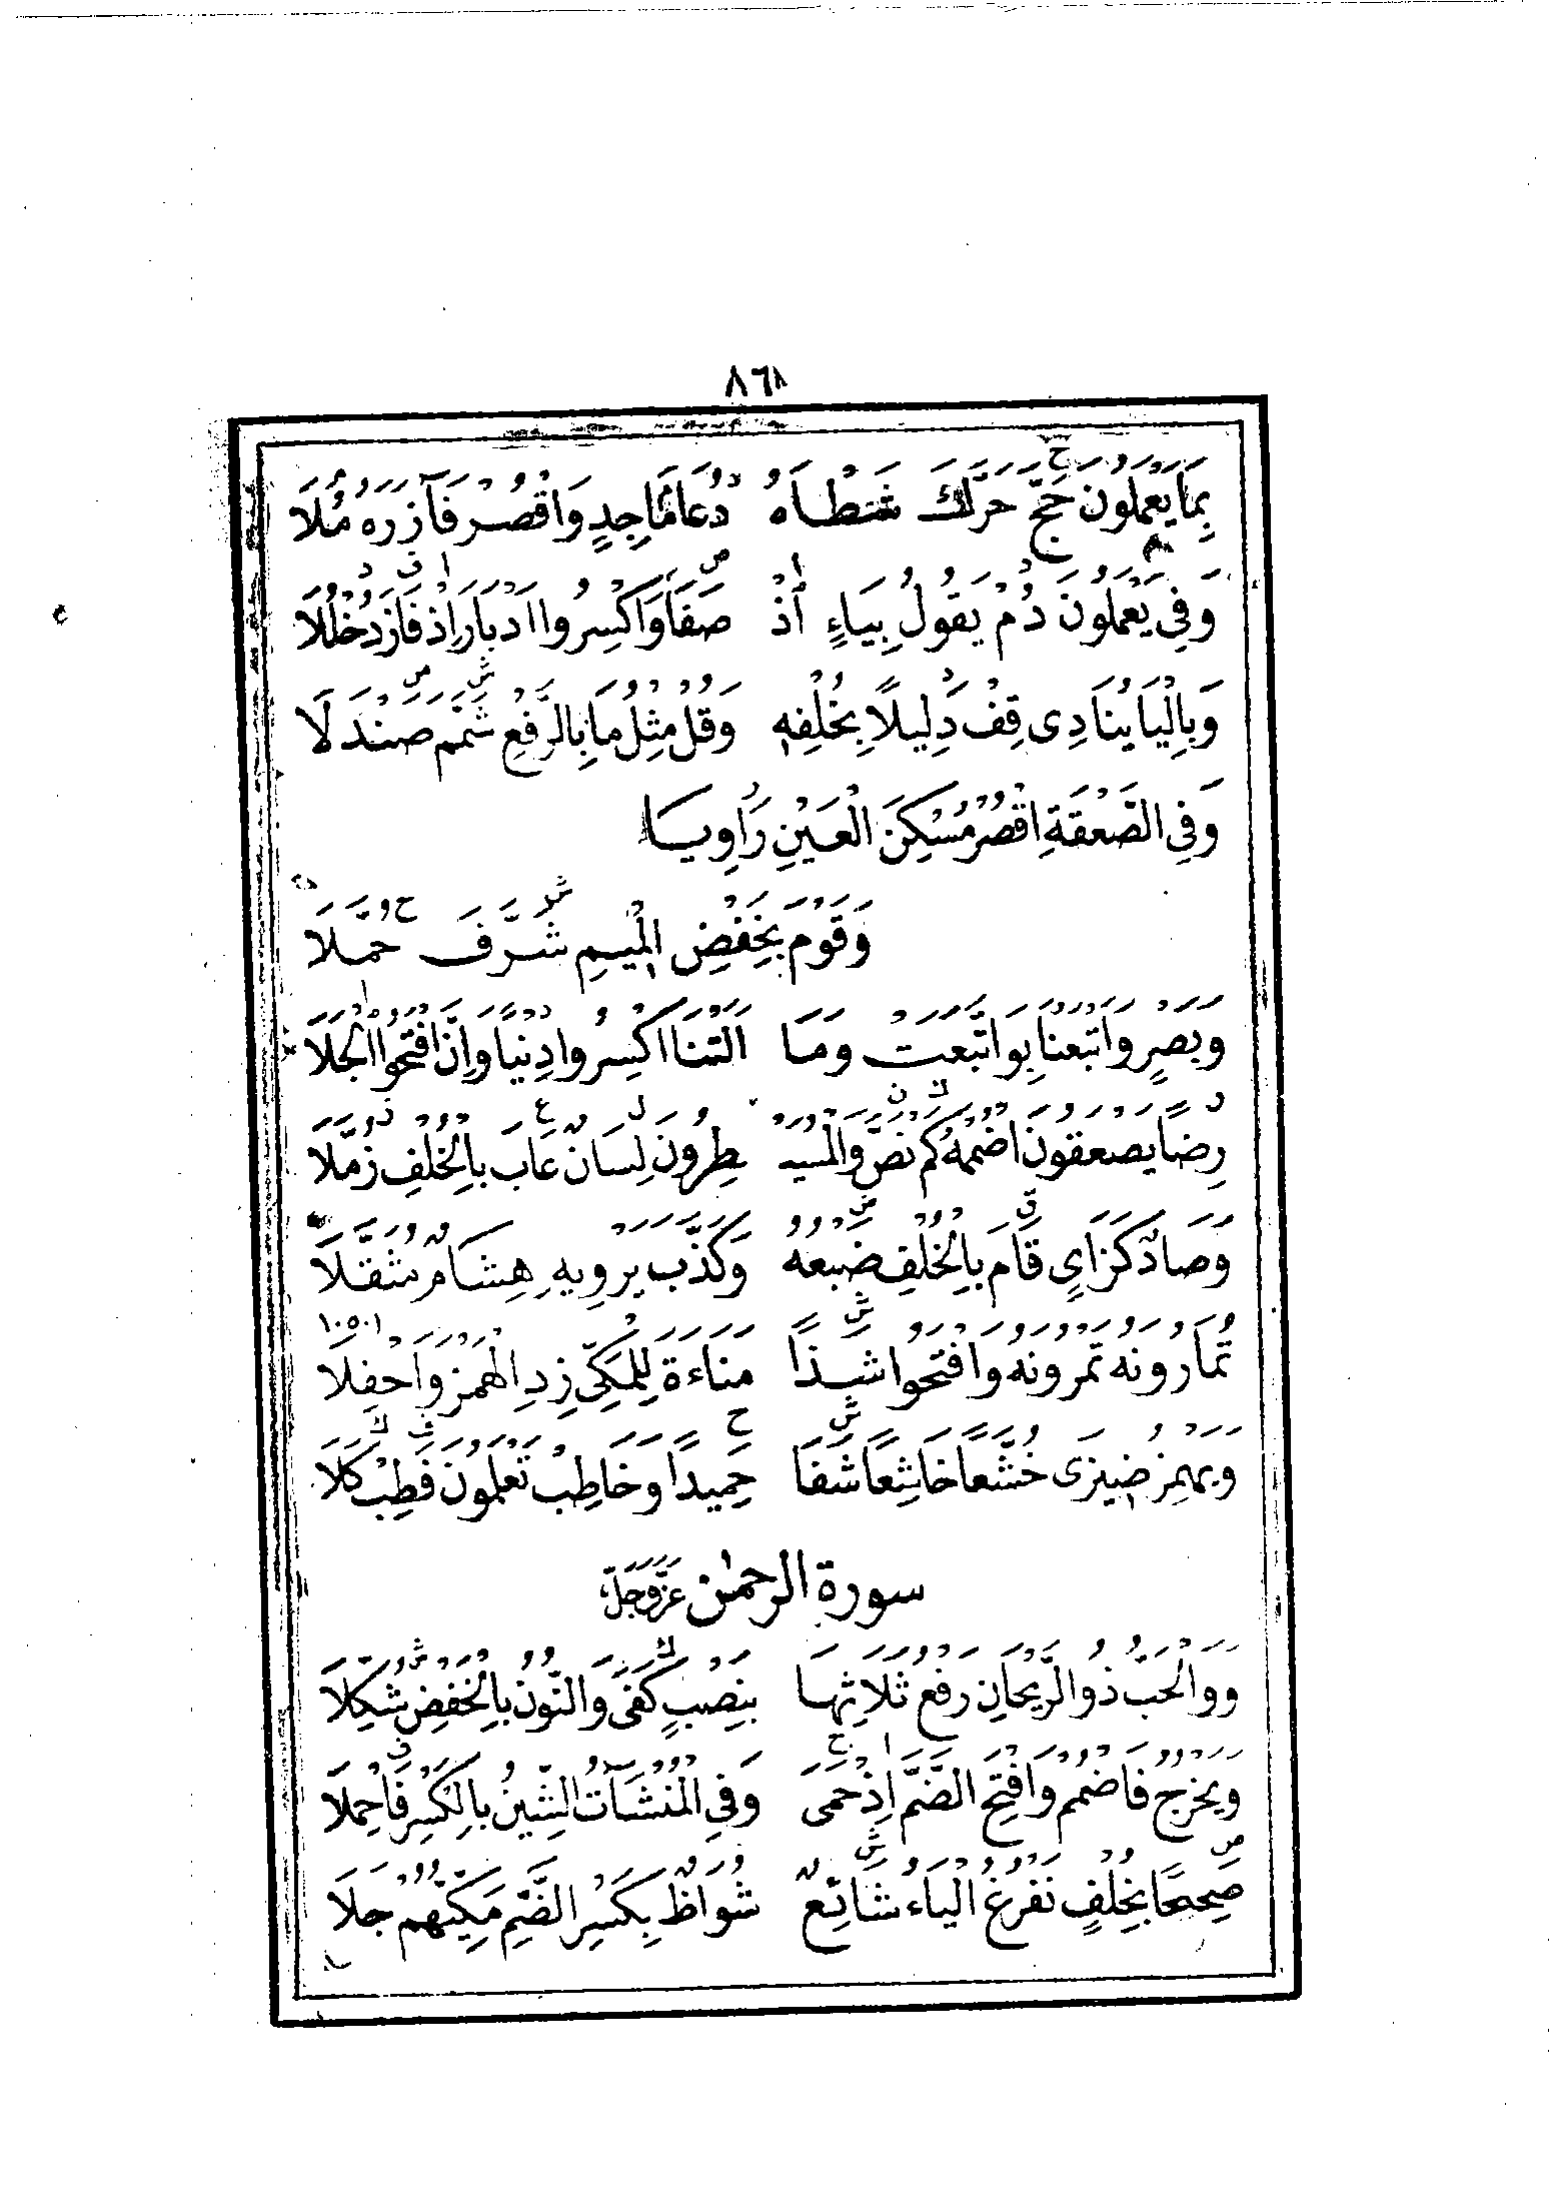 ٨٦
بِمَا يَعْمَلُونَ حَجَّ حَرَّكَ شَطْأَهُ دُعَا مَاجِدٍ وَاقْصُرْ فَآزَرَهُ مُلَا
وَفِي يَعْمَلُونَ دُمْ يَقُولُ بِيَاءٍ اذْ صَفَا وَاكْسِرُوا ادْبَارَ اِذْ فَازَ دُخْلُلَا
وَبِالْيَا يُنَادِى قِفْ دَلِيلًا بِخُلْفِهِ وَقُلْ مِثْلُ مَا بِالرَّفْعِ شَمَّمَ صَنْدَلَا
وَفِي الصَّعْقَةِ اقْصُرْ مُسْكِنَ الْعَيْنِ رَاوِيَا
وَقَوْمَ بِخَفْضِ الْمِيمِ شَرَّفَ حُمَّلَا
وَبَصْرٍ وَاَتْبَعْنَا بِوَاتَّبَعَتْ وَمَا اَلَتْنَا اكْسِرُوا دِنْيًا وَاِنَّ افْتَحُوا الْجَلَا
رِضًا يَصْعَقُونَ اضْمُمْهُ كَمْ نَصَّ وَالْمُسَيْـ ـطِرُونَ لِسَانٌ عَابَ بِالْخُلْفِ زُمَّلَا
وَصَادٌ كَزَايٍ قَامَ بِالْخُلْفِ ضَبْعُهُ وَكَذَّبَ يَرْوِيهِ هِشَامٌ مُثَقَّلَا
تُمَارُونَهُ تَمْرُونَهُ وَافْتَحُوا شَذًا مَنَاءَةَ لِلْمَكِّي زِدِ الْهَمْزَ وَاَحْفِلَا
وَيَهْمِزُ ضِيزَى خُشَّعًا خَاشِعًا شَفَا حَمِيدًا وَخَاطِبْ تَعْلَمُونَ فَطِبْ كَلَا
سورة الرحمٰن عَزَّوَجَلَّ
وَوَالْحَبُّ ذُو الرَّيْحَانِ رَفْعُ ثَلَاثِهَا بِنَصْبٍ كَفَى وَالنُّونُ بِالْخَفْضِ شُكِّلَا
وَيَخْرُجُ فَاضْمُمْ وَافْتَحِ الضَّمَّ اِذْ حَمَى وَفِي الْمُنْشَآتُ الشِّينُ بِالْكَسْرِ فَاحْمِلَا
صَحِيحًا بِخُلْفٍ نَفْرُغُ الْيَاءُ شَائِعٌ شُوَاظٌ بِكَسْرِ الضَّمِّ مَكِّيُّهُمْ جَلَا